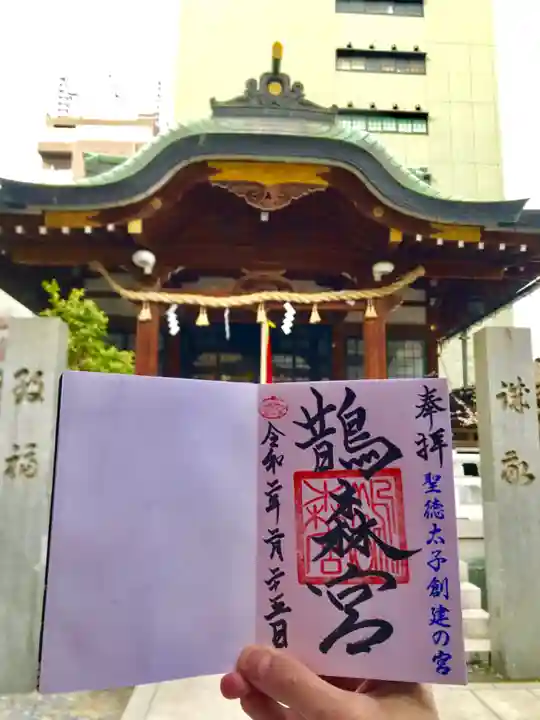 奉拝
聖徳太子創建の宮
鵲森宮
令和二年二月二十五日